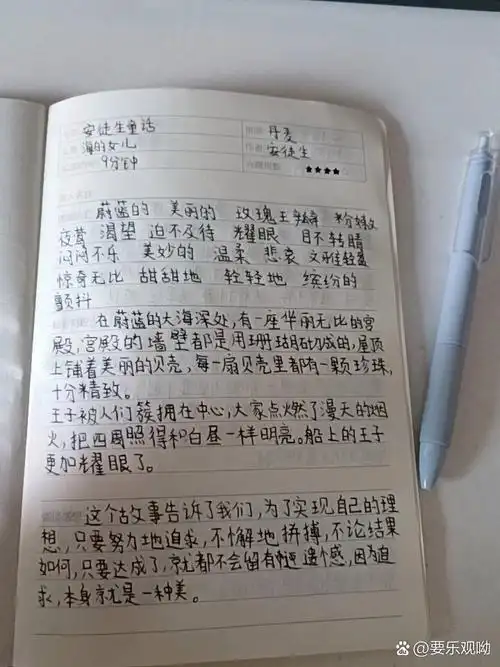 安徒生童话 丹麦
海的女儿 安徒生
9分钟 ★★★★
蔚蓝的 美丽的 玫瑰 粉嫩
夜莺 渴望 迫不及待 耀眼 目不转睛
闷闷不乐 美妙的 温柔 悲哀
惊奇无比 甜甜地 轻轻地 缤纷的
颤抖
在蔚蓝的大海深处,有一座华丽无比的宫
殿,宫殿的墙壁都是用珊瑚砌成的,屋顶
上铺着美丽的贝壳,每一扇贝壳里都有一颗珍珠,
十分精致。
王子被人们簇拥在中心,大家点燃了漫天的烟
火,把四周照得和白昼一样明亮。船上的王子
更加耀眼了。
这个故事告诉了我们,为了实现自己的理
想,只要努力地追求,不懈地拼搏,不论结果
如何,只要达成了,就都不会留有遗憾,因为追
求,本身就是一种美。
@要乐观呦